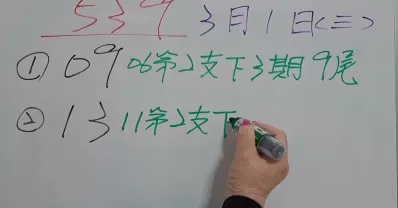 539 3月1日(三)
① 09 06第2支下3期9尾
② 13 11第2支下